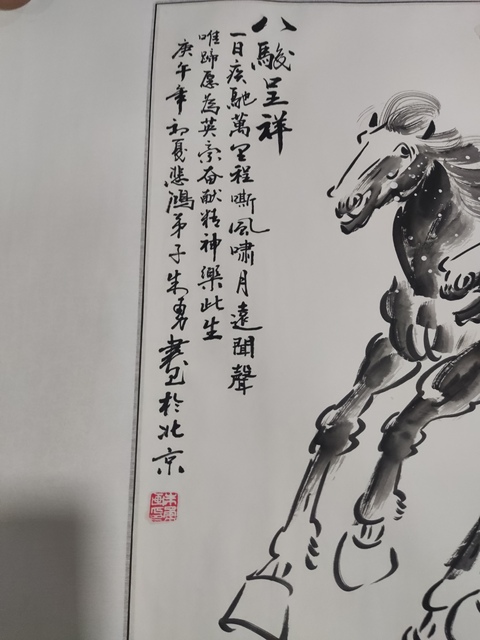 八駿呈祥
一日疾馳萬里程嘶風嘯月遠聞聲
唯蹄愿為英豪奋献精神樂此生
庚午年初夏悲鴻弟子朱勇畫於北京